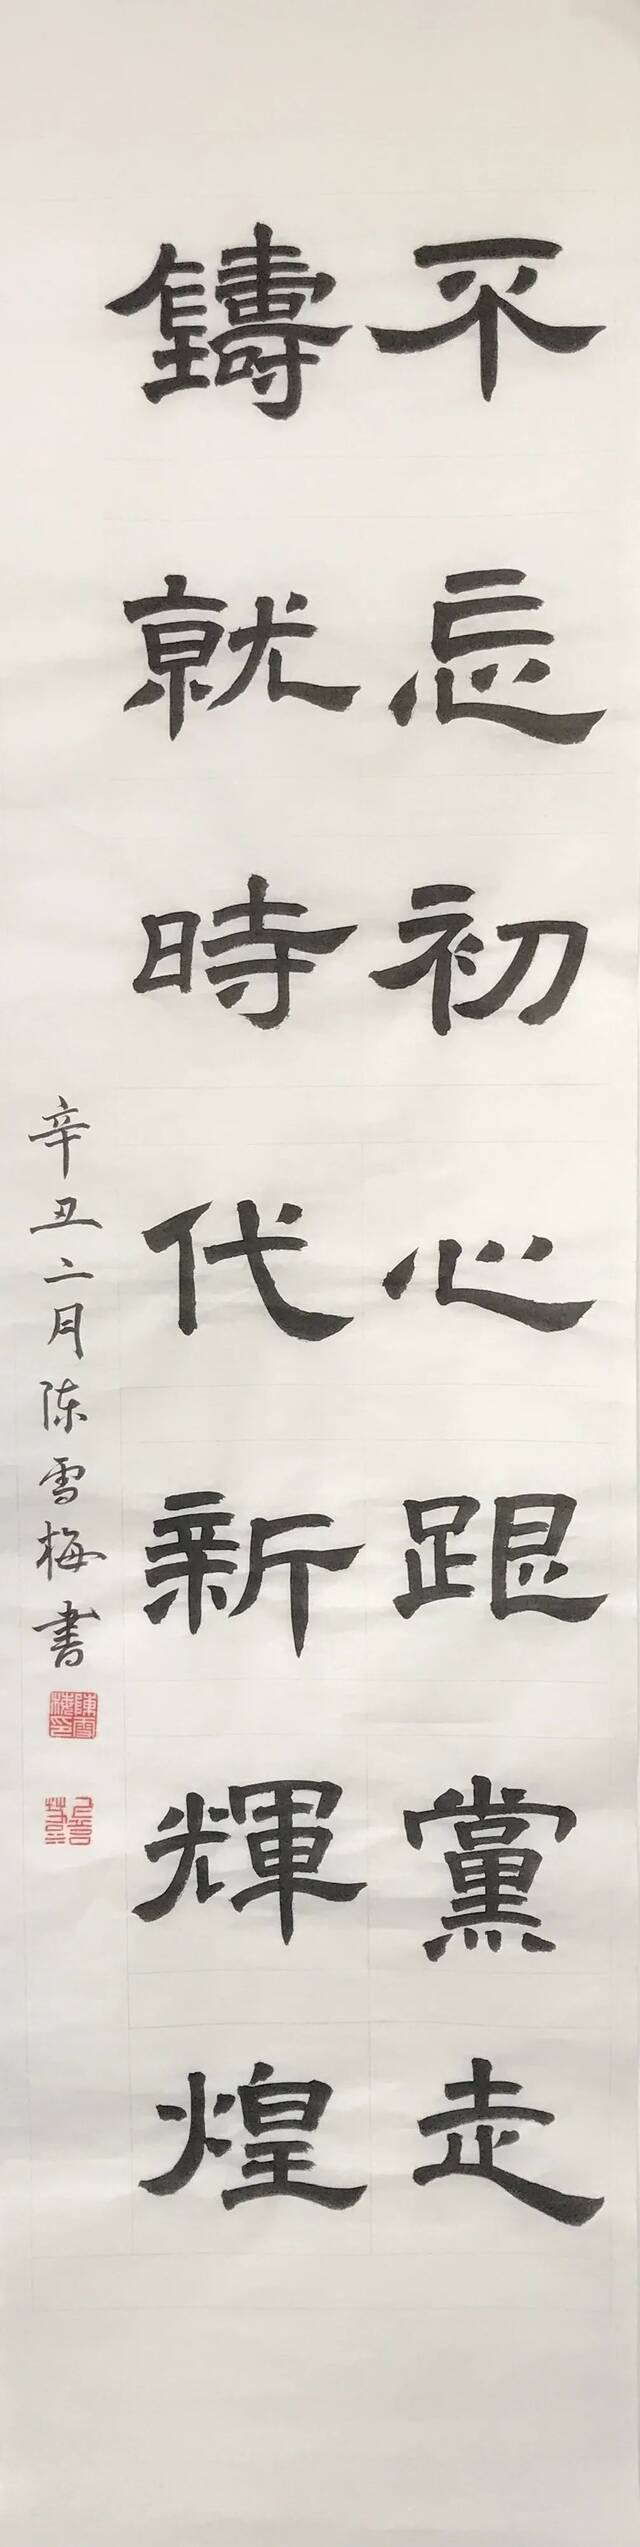 不忘初心跟黨走
鑄就時代新輝煌
辛丑二月陈雪梅书
陳雪梅印